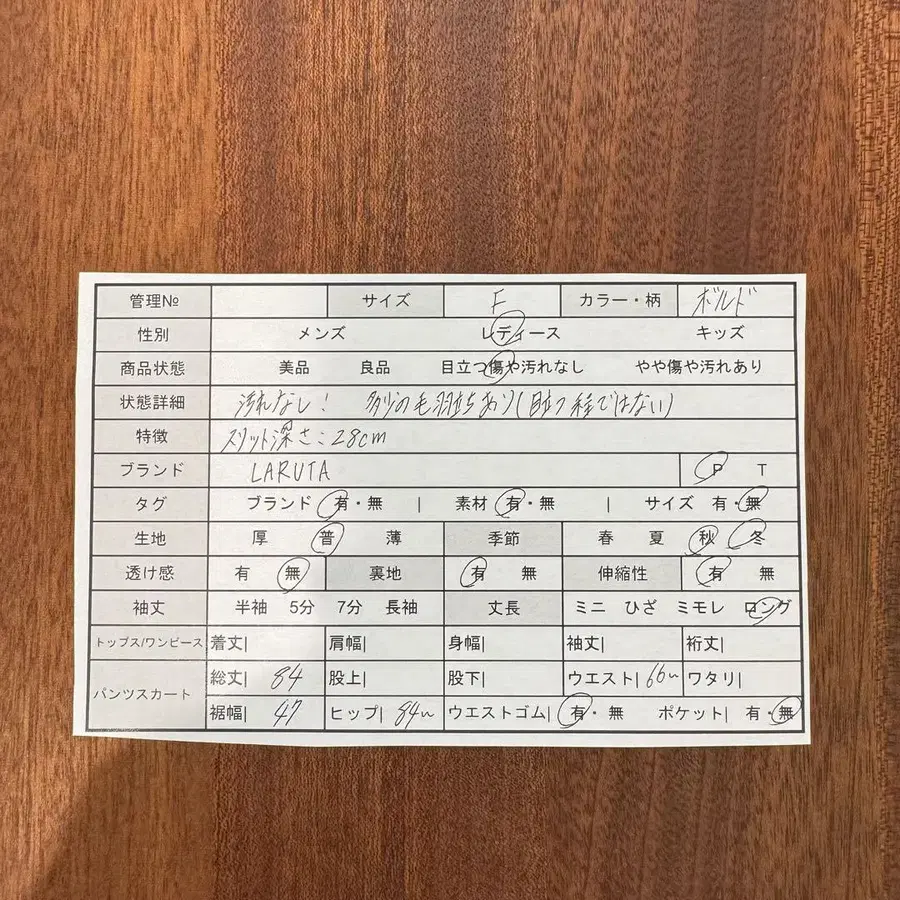 管理№ サイズ F カラー・柄 ボルド
性別 メンズ レディース キッズ
商品状態 美品 良品 目立つ傷や汚れなし やや傷や汚れあり
状態詳細 汚れなし! 多少の毛羽立ちあり(目立つ程ではない)
特徴 スリット深さ:28cm
ブランド LARUTA P T
タグ ブランド 有・無 | 素材 有・無 | サイズ 有・無
生地 厚 普 薄 季節 春 夏 秋 冬
透け感 有 無 裏地 有 無 伸縮性 有 無
袖丈 半袖 5分 7分 長袖 丈長 ミニ ひざ ミモレ ロング
トップス/ワンピース 着丈| 肩幅| 身幅| 袖丈| 裄丈|
パンツスカート 総丈| 84 股上| 股下| ウエスト| 66~ ワタリ|
裾幅| 47 ヒップ| 84~ ウエストゴム| 有・無 ポケット| 有・無